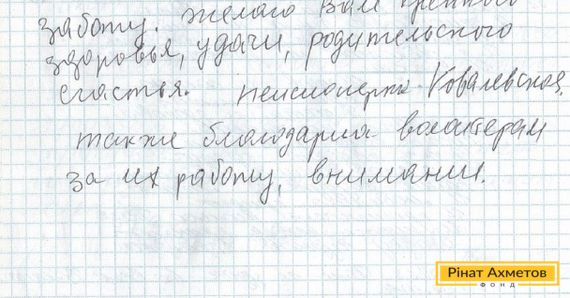 заботу. Желаю Вам крепкого
здоровья, удачи, родительского
счастья. пенсионерка Ковалевская,
также благодарна волонтерам
за их работу, внимание.
Рінат Ахметов
ФОНД